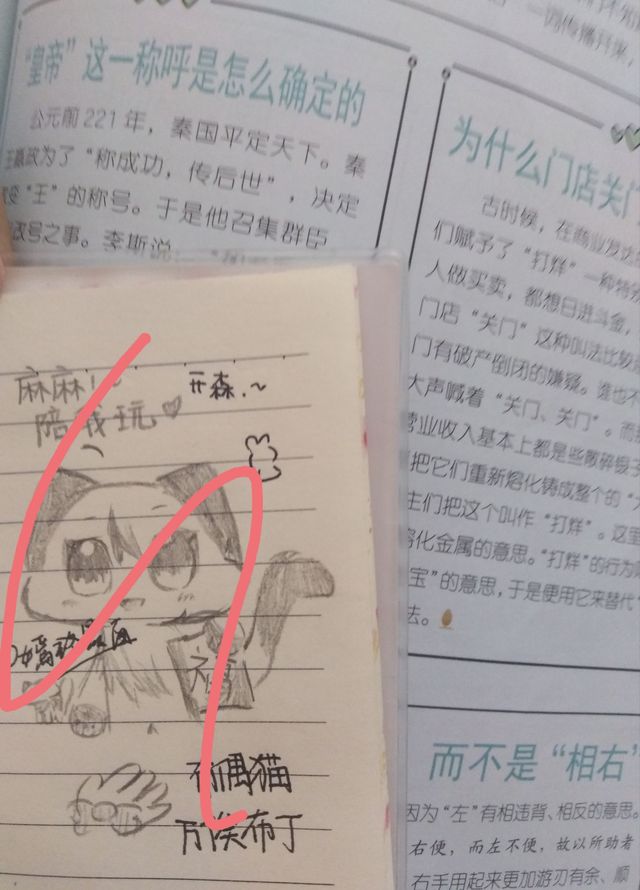 一词传播开来，
“皇帝”这一称呼是怎么确定的
公元前221年，秦国平定天下。秦
王嬴政为了“称成功，传后世”，决定
改变“王”的称号。于是他召集群臣
议帝号之事。李斯说：
为什么门店关门
古时候，在商业发达的
们赋予了“打烊”一种特殊
人做买卖，都想日进斗金，
门店“关门”这种叫法比较忌
门有破产倒闭的嫌疑。谁也不
大声喊着“关门、关门”。而
营业收入基本上都是些散碎银
把它们重新熔化铸成整个的“
主们把这个叫作“打烊”。这里
熔化金属的意思。“打烊”的行为
宝”的意思，于是便用它来替代“
法。
而不是“相右”
因为“左”有相违背、相反的意思。
右便，而左不便，故以所助者
右手用起来更加游刃有余、顺
麻麻！~
陪我玩♡
开森.~
偶猫
万俟布丁